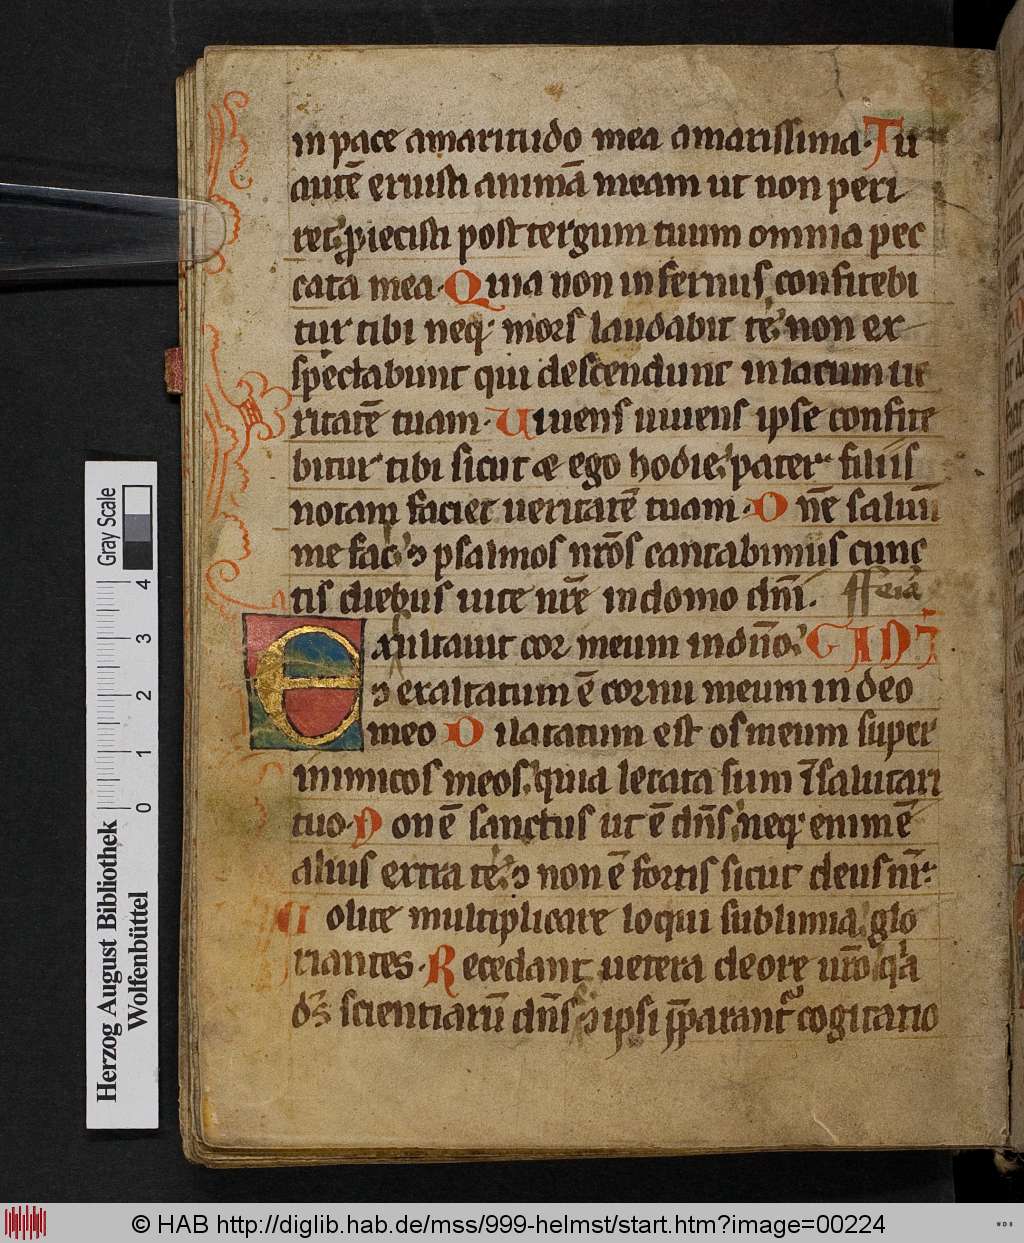 in pace amaritudo mea amarissima. Tu
autē eruisti animā meam ut non peri
ret, ꝓiecisti post tergum tuum omnia pec
cata mea. Quia non infernus confitebi
tur tibi neqꝫ mors laudabit te, non ex
spectabunt qui descendunt in lacum ue
ritatē tuam. Uiuens uiuens ipse confite
bitur tibi sicut & ego hodie, pater filiis
notam faciet ueritatē tuam. Dn̄e saluū
me fac, ⁊ psalmos nr̄os cantabimus cunc
tis diebus uite nr̄e in domo dn̄i. feria
Exultauit cor meum in dn̄o,
⁊ exaltatum ē cornu meum in deo
meo Dilatatum est os meum super
inimicos meos, quia letata sum ī salutari
tuo. Non ē sanctus ut ē dn̄s, neqꝫ enim ē
alius extra te, ⁊ non ē fortis sicut deus nr̄.
Nolite multiplicare loqui sublimia, glo
riantes. Recedant uetera de ore ur̄o, qa
ds̄ scientiarū dn̄s ⁊ ipsi p̄parant cogitatio
Gray Scale
4 3 2 1 0
Herzog August Bibliothek
Wolfenbüttel
© HAB http://diglib.hab.de/mss/999-helmst/start.htm?image=00224